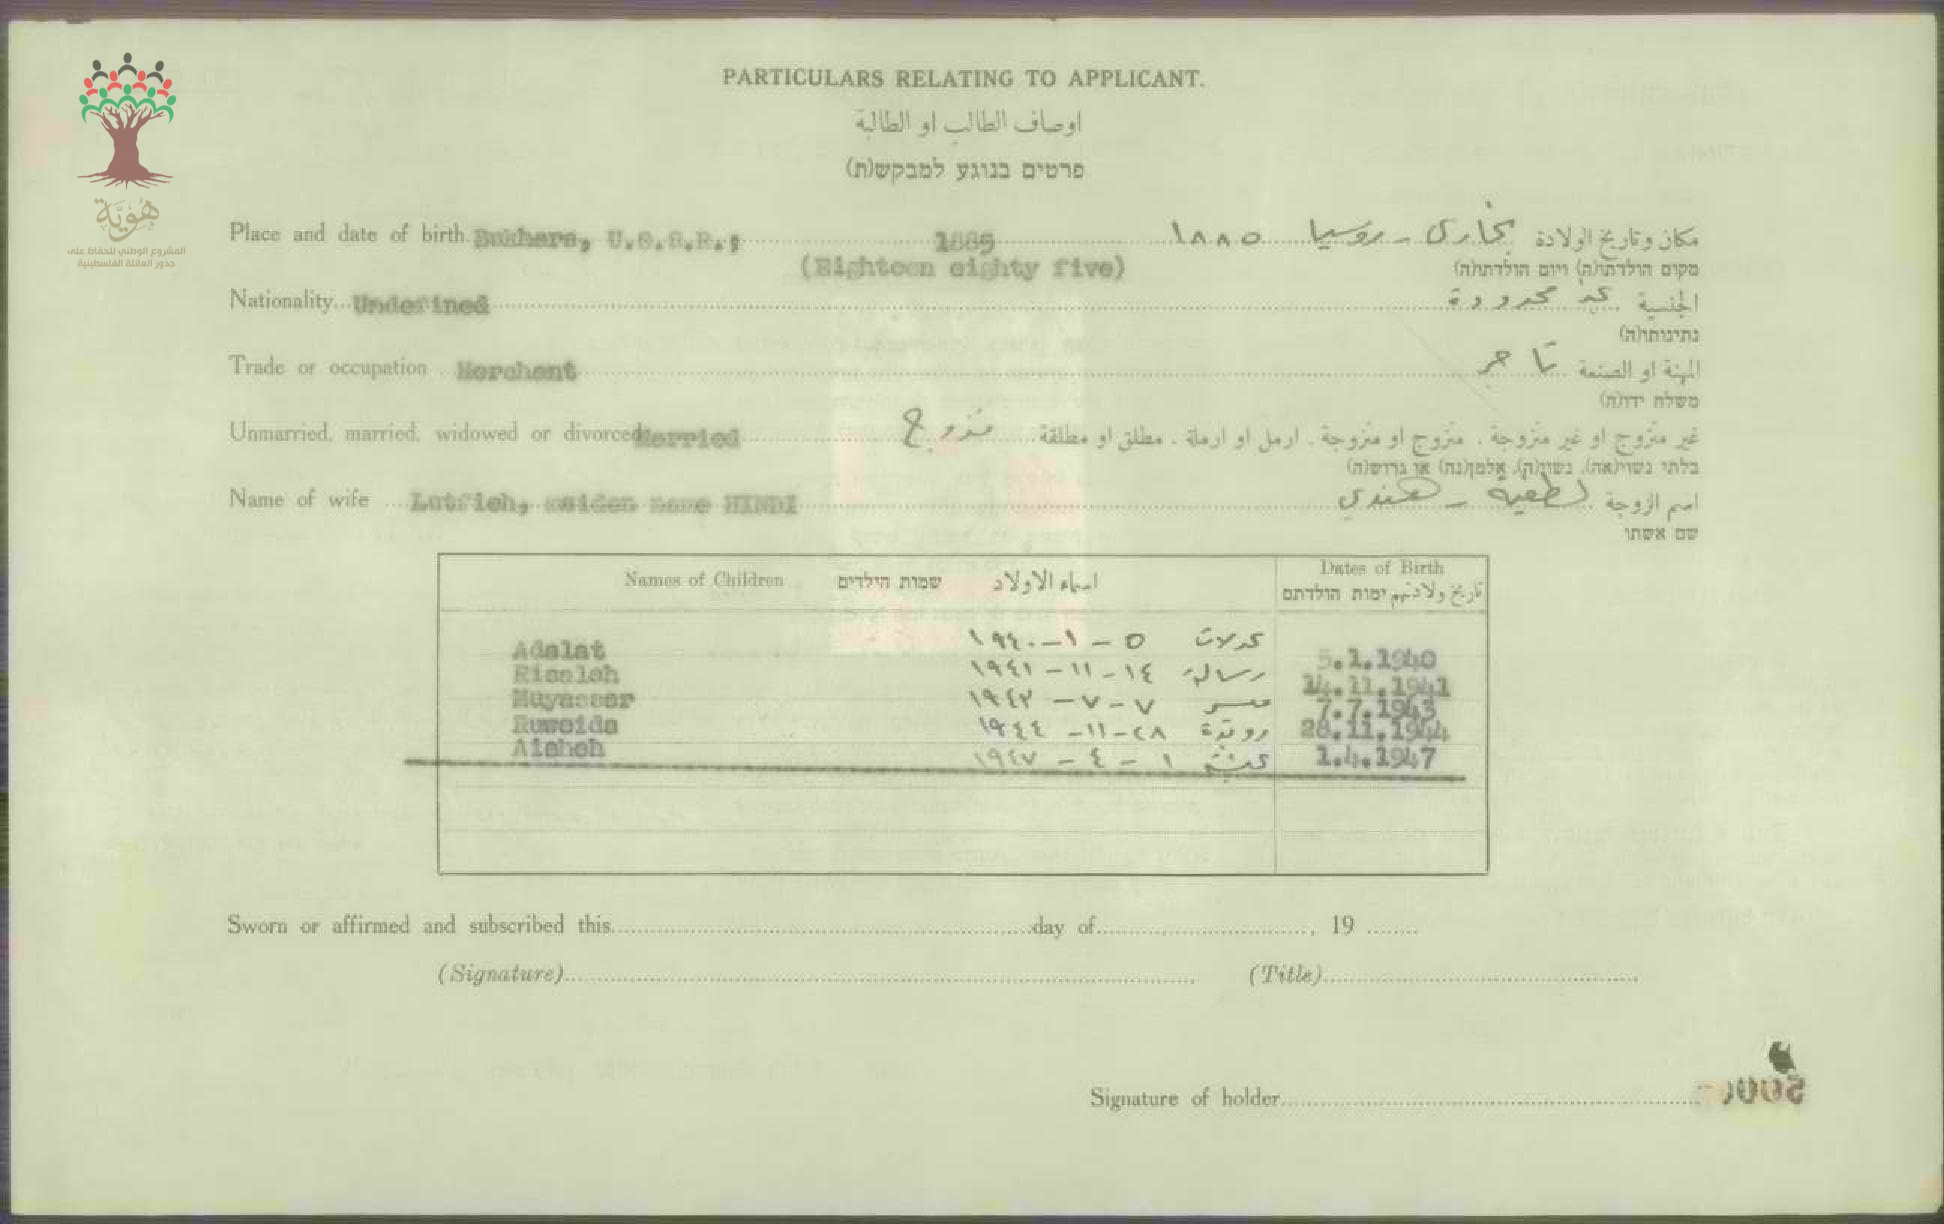 PARTICULARS RELATING TO APPLICANT.
اوصاف الطالب او الطالبة
פרטים בנוגע למבקש(ת)
هُوِيَّة
المشروع الوطني للحفاظ على
جذور العائلة الفلسطينية
Place and date of birth Bukhara, U.S.S.R., 1885 ١٨٨٥ بخارى - روسيا مكان وتاريخ الولادة
(Eighteen eighty five) מקום הולדתו(ה) ויום הולדתו(ה)
Nationality Undefined غير محدودة الجنسية
נתינותו(ה)
Trade or occupation Merchant تاجر المهنة او الصنعة
משלח ידו(ה)
Unmarried, married, widowed or divorced Married متزوج غير متزوج او غير متزوجة . متزوج او متزوجة . ارمل او ارملة . مطلق او مطلقة
בלתי נשוי(אה), נשוי(ה), אלמן(נה) או גרוש(ה)
Name of wife Lutfieh, maiden name HINDI لطفية - هندي اسم الزوجة
שם אשתו
Names of Children שמות הילדים اسماء الاولاد Dates of Birth
تاريخ ولادتهم ימות הולדתם
Adalat عدلات ٥ - ١ - ١٩٤٠ 5.1.1940
Risaleh رسالة ١٤ - ١١ - ١٩٤١ 14.11.1941
Muyasser ميسر ٧ - ٧ - ١٩٤٣ 7.7.1943
Ruweida رويدة ٢٨ - ١١ - ١٩٤٤ 28.11.1944
Aisheh عيشة ١ - ٤ - ١٩٤٧ 1.4.1947
Sworn or affirmed and subscribed this day of , 19
(Signature) (Title)
Signature of holder